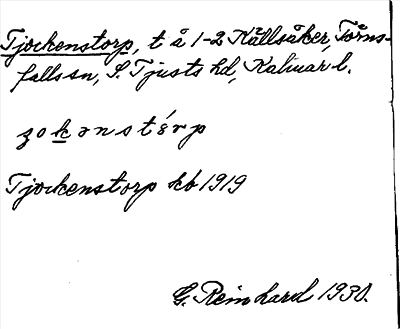 Tjockenstorp, t å 1-2 Källsåker, Törns-
falls sn, S. Tjusts hd, Kalmar l.
ʒokənstórp
Tjockenstorp kb 1919
G. Reinhard 1930.